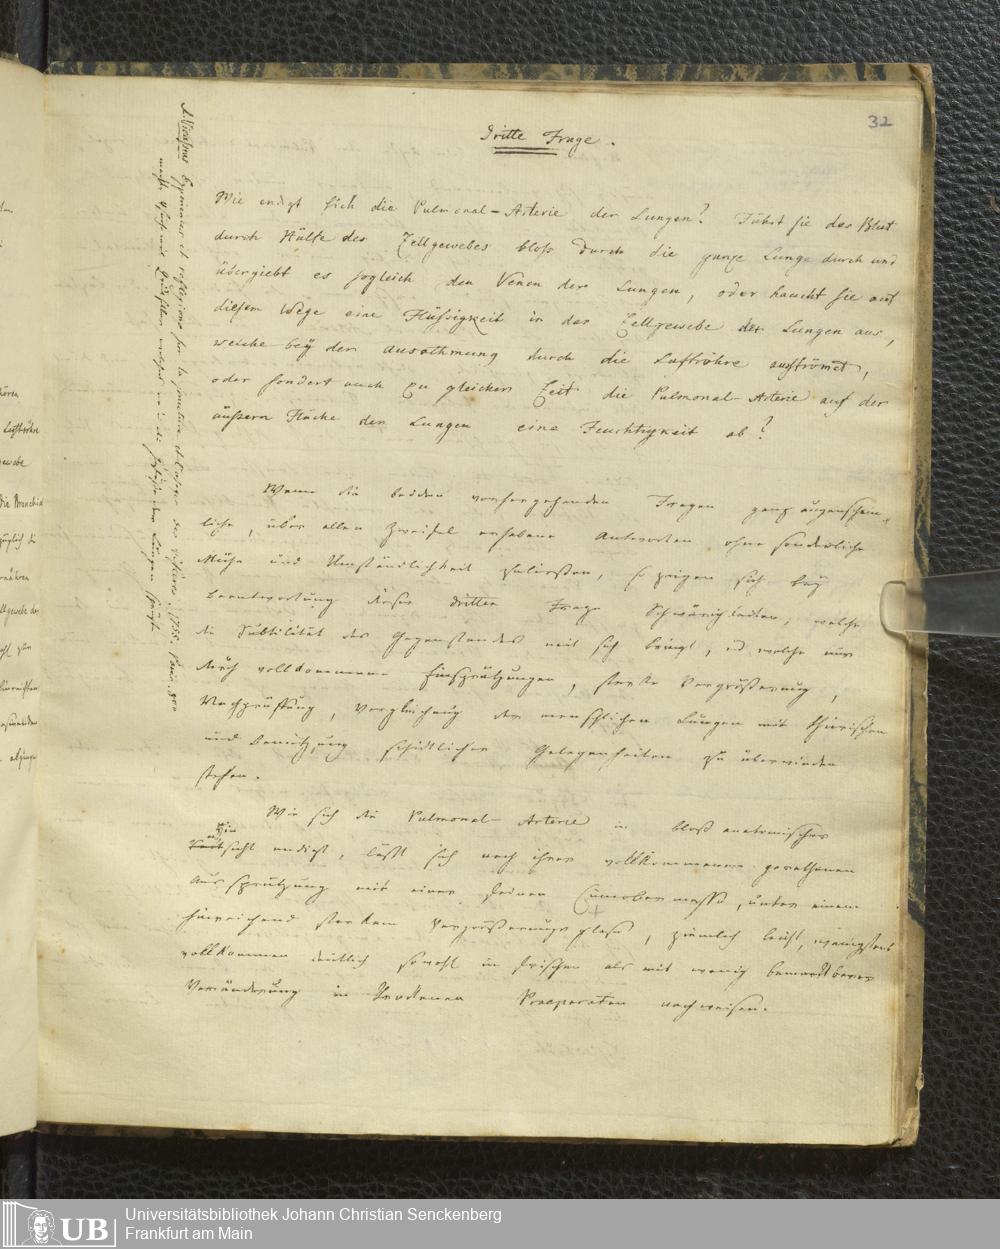 32
Dritte Frage.
Wie endigt sich die Pulmonal-Arterie der Lungen? Führt sie das Blut
durch Hülfe des Zellgewebes bloss durch die ganze Lunge durch und
übergiebt es sogleich den Venen der Lungen, oder haucht sie auf
diesem Wege eine Flüssigkeit in das Zellgewebe der Lungen aus,
welche bey der Ausathmung durch die Luftröhre ausströmet,
oder sondert auch zu gleicher Zeit die Pulmonal-Arterie auf der
äussern Fläche der Lungen eine Feuchtigkeit ab?
Wenn die beiden vorhergehenden Fragen ganz augenschein-
liche, über allen Zweifel erhabene Antworten ohne sonderliche
Mühe und Umständlichkeit zuliessen, so zeigen sich bey
Beantwortung dieser dritten Frage Schwürigkeiten, welche
die Subtilität des Gegenstandes mit sich bringt, und welche nur
durch vollkommene Einsprützungen, starke Vergrößerung,
Vergleichung der menschlichen Lungen mit thierischen
und Benützung schicklicher Gelegenheiten zu überwinden
stehen.
Wie sich die Pulmonal-Arterie in bloss anatomischer
Hinsicht endigt, lässt sich nach ihrer vollkommenen gerathenen
Aussprützung mit einer feinen Cinnobermasse, unter einem
hinreichend starken Vergrößerungsglase, ziemlich leicht, wenigstens
vollkommen deutlich sowohl in frischen als mit wenig bemerkbarer
Veränderung in trockenen Praeparaten nachweisen.
Experiences et reflexions sur la structure et l'usage des viscères. 1755. Paris.
Luftröhre
die Bronchia
Universitätsbibliothek Johann Christian Senckenberg
Frankfurt am Main
UB